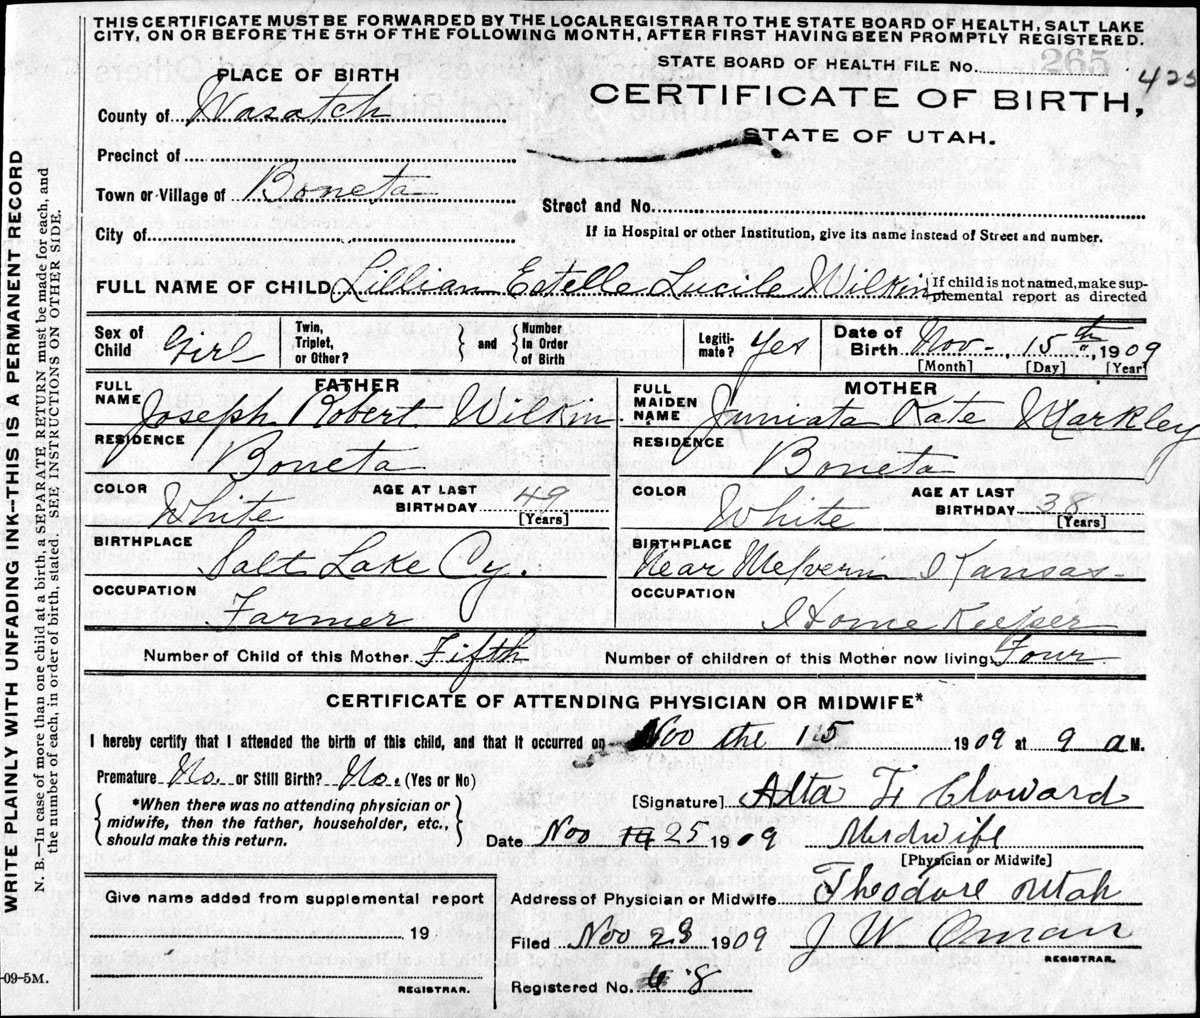 THIS CERTIFICATE MUST BE FORWARDED BY THE LOCAL REGISTRAR TO THE STATE BOARD OF HEALTH, SALT LAKE
CITY, ON OR BEFORE THE 5TH OF THE FOLLOWING MONTH, AFTER FIRST HAVING BEEN PROMPTLY REGISTERED.
STATE BOARD OF HEALTH FILE No. 265 425
PLACE OF BIRTH
CERTIFICATE OF BIRTH,
STATE OF UTAH.
County of Wasatch
Precinct of
Town or Village of Boneta
Street and No.
City of
If in Hospital or other Institution, give its name instead of Street and number.
FULL NAME OF CHILD Lillian Estelle Lucile Wilkin
If child is not named, make sup-
plemental report as directed
Sex of Child Girl Twin, Triplet, or Other? and Number In Order of Birth Legiti-mate? Yes Date of Birth Nov- 15th, 1909
[Month] [Day] [Year]
FATHER
FULL NAME Joseph Robert Wilkin
RESIDENCE Boneta
COLOR White AGE AT LAST BIRTHDAY 49 [Years]
BIRTHPLACE Salt Lake Cy.
OCCUPATION Farmer
MOTHER
FULL MAIDEN NAME Juniata Kate Markley
RESIDENCE Boneta
COLOR White AGE AT LAST BIRTHDAY 38 [Years]
BIRTHPLACE Near Melvern Kansas-
OCCUPATION Home Keeper
Number of Child of this Mother Fifth Number of children of this Mother now living Four
CERTIFICATE OF ATTENDING PHYSICIAN OR MIDWIFE*
I hereby certify that I attended the birth of this child, and that it occurred on Nov the 15 1909 at 9 a M.
Premature No. or Still Birth? No. (Yes or No)
[Signature] Alta F. Cloward
*When there was no attending physician or
midwife, then the father, householder, etc.,
should make this return.
Date Nov 25 1909 Midwife
[Physician or Midwife]
Address of Physician or Midwife Theodore Utah
Filed Nov 28 1909 J W Oman
REGISTRAR.
Registered No. 8
Give name added from supplemental report
19
REGISTRAR.
-09-5M.
WRITE PLAINLY WITH UNFADING INK--THIS IS A PERMANENT RECORD
N. B.—In case of more than one child at a birth, a SEPARATE RETURN must be made for each, and
the number of each, in order of birth, stated. SEE INSTRUCTIONS ON OTHER SIDE.